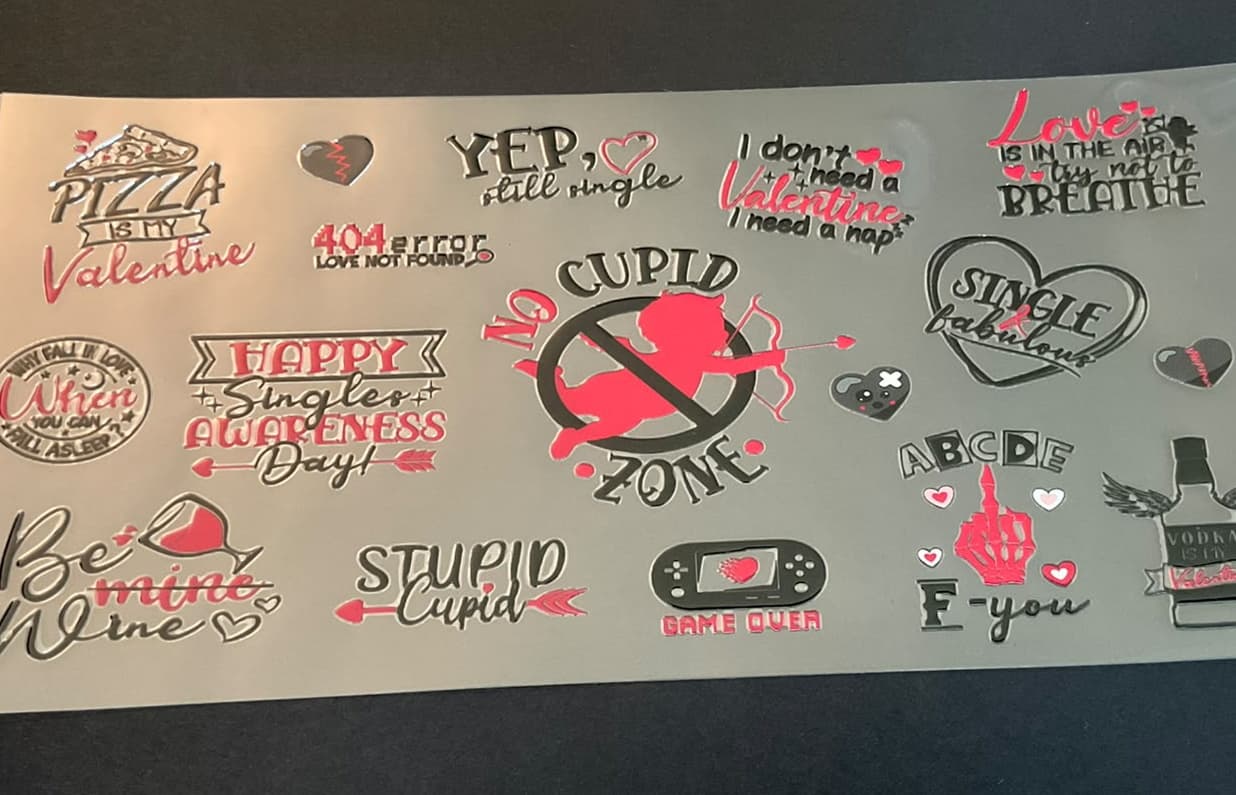 PIZZA
IS MY
Valentine
404 error
LOVE NOT FOUND
YEP,
still single
I don't
need a
Valentine
I need a nap
Love is
IS IN THE AIR
try not to
BREATHE
WHY FALL IN LOVE
When
YOU CAN
FALL ASLEEP?
HAPPY
Singles
AWARENESS
Day!
NO CUPID
ZONE
SINGLE
&
fabulous
Be
mine
Wine
STUPID
Cupid
GAME OVER
ABCDE
F-you
VODKA
IS MY